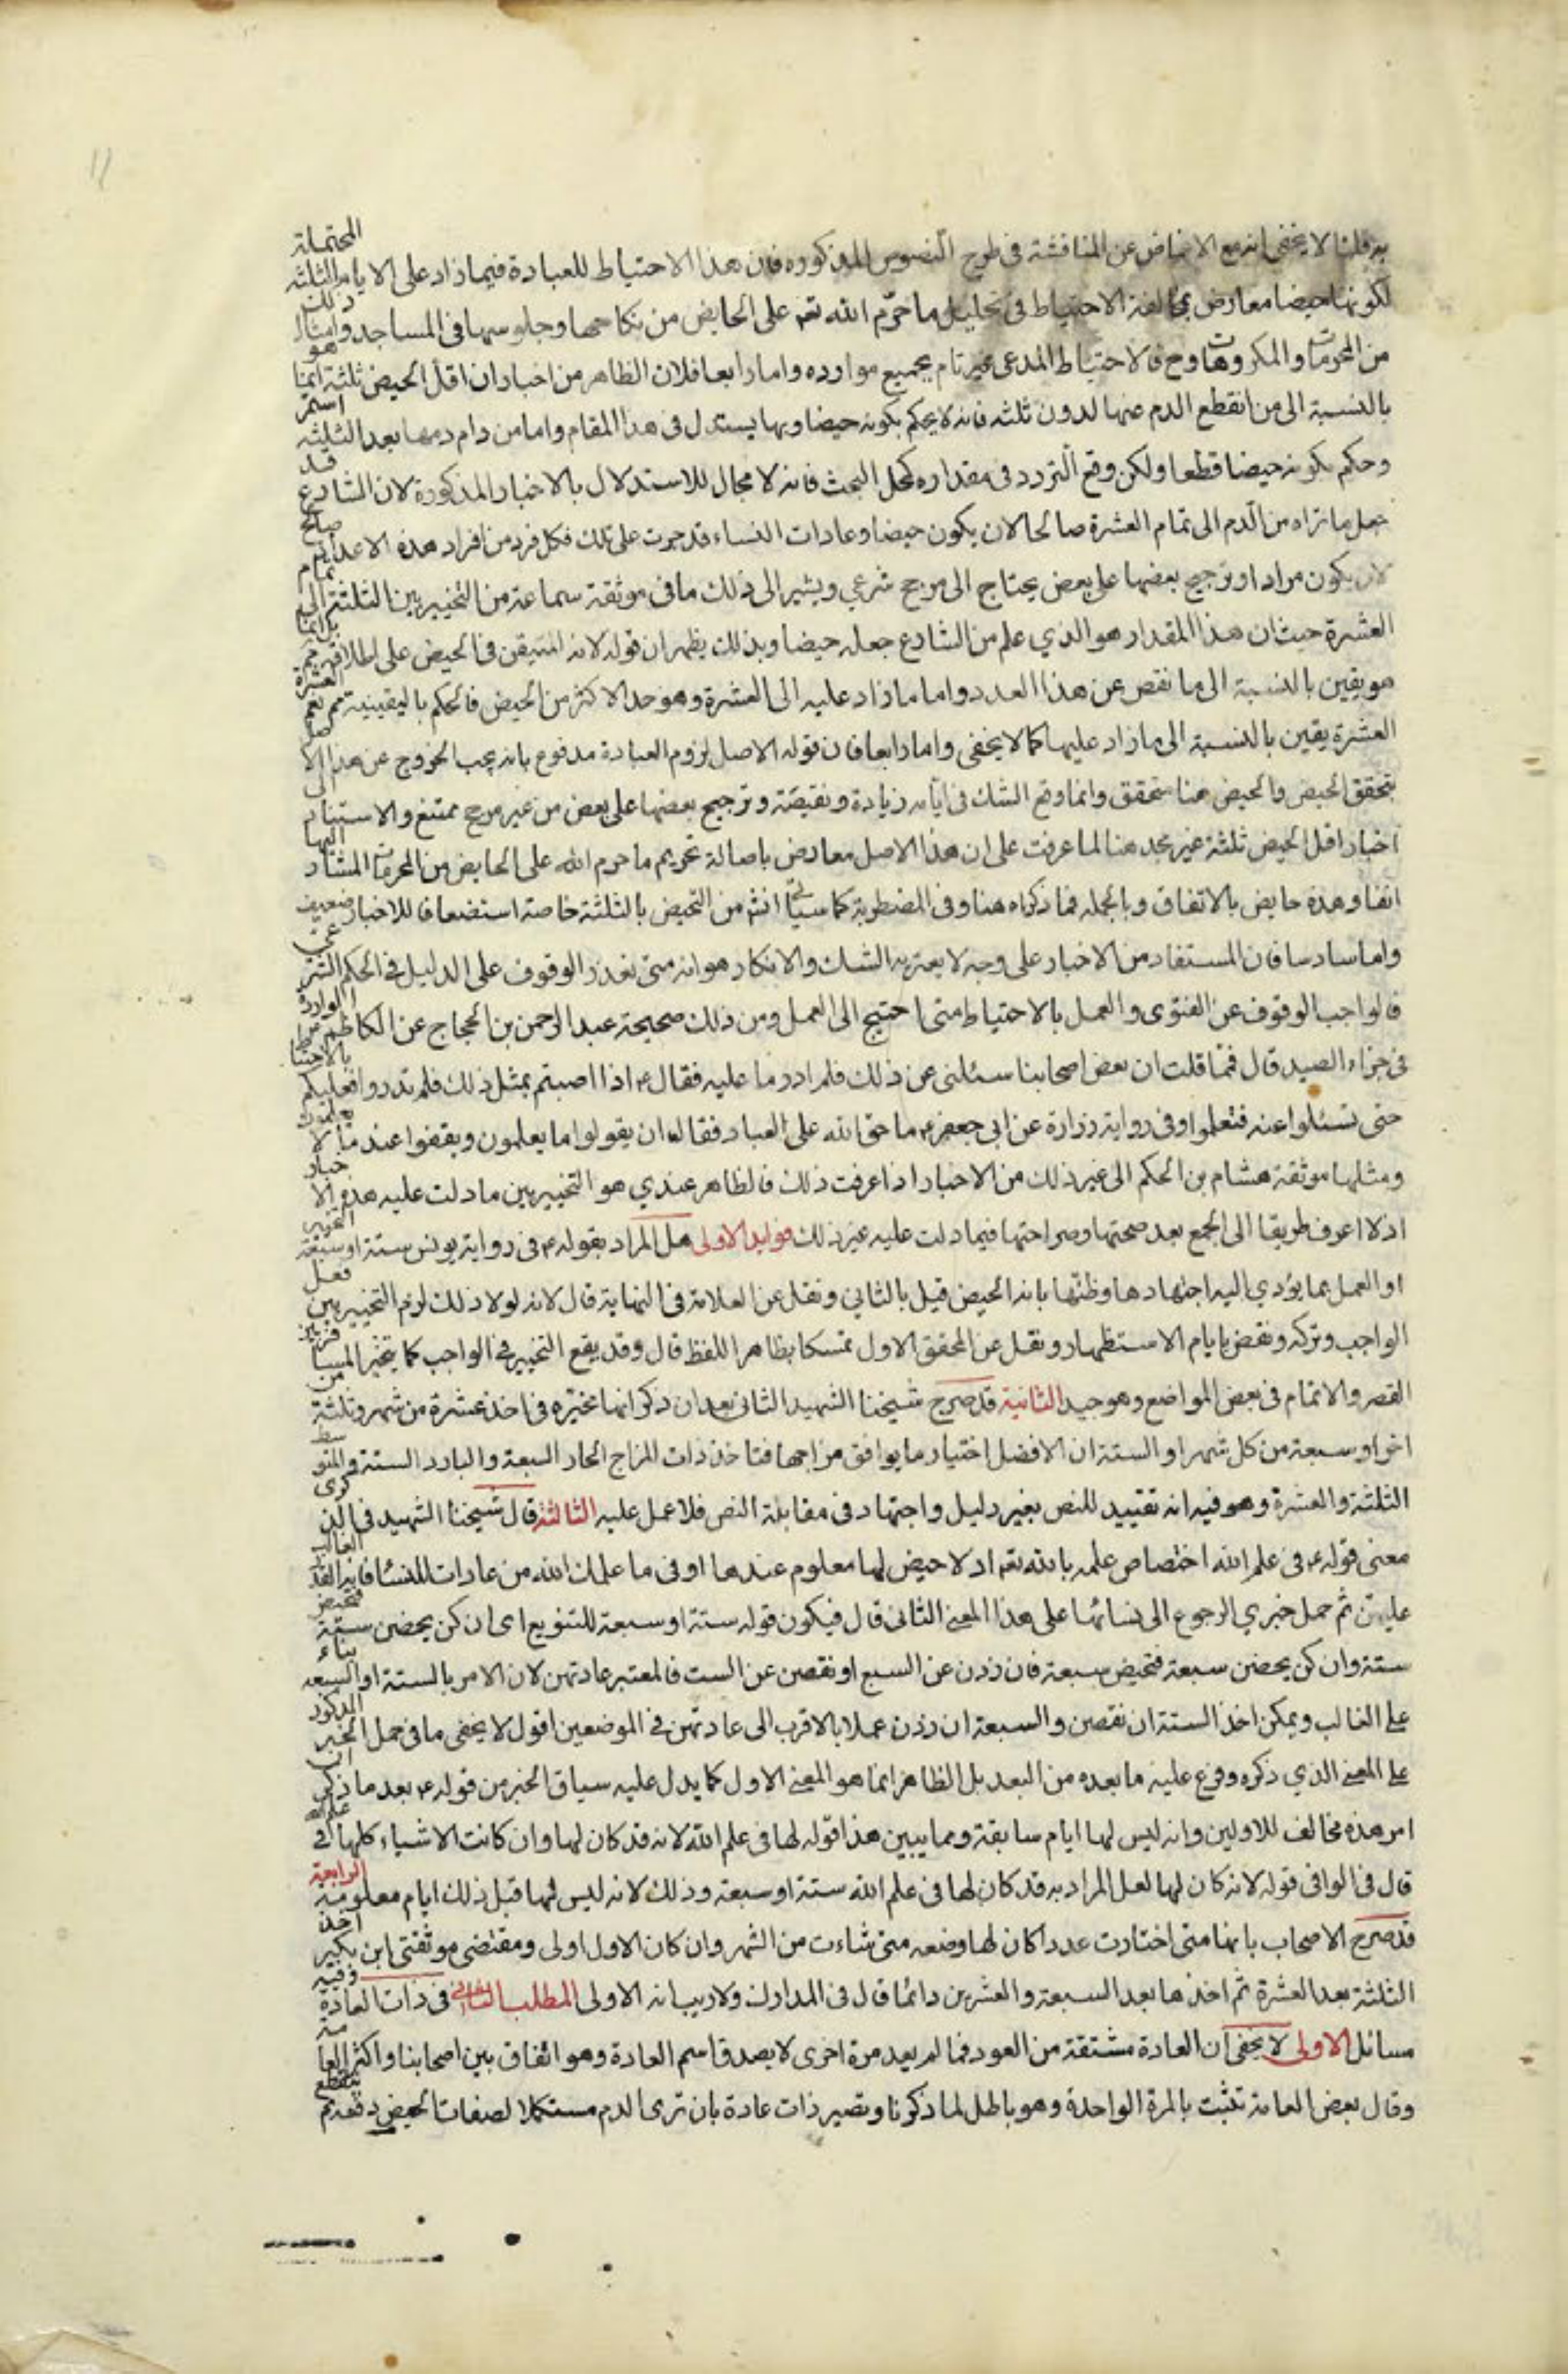 به قلنا لا يخفى انه مع الاغماض عن المناقشة فى طرح النصوص المذكوره فان هذا الاحتياط للعبادة فيما زاد على الايام الثلثه المحتملة
لكونها حيضا معارض بمخالفة الاحتياط فى تحليل ما حرّم الله تعم على الحايض من نكاحها وجلوسها فى المساجد وامثال ذلك
من المحرمات والمكروهات وح فالاحتياط المدعى غير تام بجميع موارده واما رابعا فلان الظاهر من اخبار ان اقل الحيض ثلثة ايما هو
بالنسبة الى من انقطع الدم عنها لدون ثلثه فانه لا يحكم بكونه حيضا وبها يستدل فى هذا المقام واما من دام دمها بعد الثلثه استمر
وحكم بكونه حيضا قطعا ولكن وقع التردد فى مقداره كمحل البحث فانه لا مجال للاستدلال بالاخبار المذكورة لان الشارع قد
جعل ما تراه من الدم الى تمام العشرة صالحا لان يكون حيضا وعادات النساء قد جرت على تلك فكل فرد من افراد هذه الاعداد صالح
لان يكون مرادا وترجيح بعضها على بعض يحتاج الى مرجح شرعي ويشير الى ذلك ما فى موثقة سماعة من التخيير بين الثلثة الى تمام
العشرة حيث ان هذا المقدار هو الذي علم من الشارع جعله حيضا وبذلك يظهر ان قوله لانه المتيقن فى الحيض على اطلاقه
هو يقين بالنسبة الى ما نقص عن هذا العدد واما ما زاد عليه الى العشرة وهو حد الاكثر من الحيض فالحكم باليقينية نعم العشرة
العشرة يقين بالنسبة الى ما زاد عليها كما لا يخفى واما رابعا فان قوله الاصل لزوم العبادة مدفوع بانه يجب الخروج عن هذا الاصل
بتحقق الحيض والحيض هنا متحقق وانما وقع الشك فى ايامه زيادة ونقيصة وترجيح بعضها على بعض من غير مرجح ممتنع والاستناد الى
اخبار اقل الحيض ثلثة غير مجد هنا لما عرفت على ان هذا الاصل معارض باصالة تحريم ما حرم الله على الحايض من المحرمات المشار اليها
انفا وهذه حايض بالاتفاق وبالجمله فما ذكراه هنا وفى المضطربة كما سيأتي انشم من التحيض بالثلثة خاصة استضعافا للاخبار ضعيف
واما سادسا فان المستفاد من الاخبار على وجه لا يعتريه الشك والانكار هو انه متى تعذر الوقوف على الدليل فى الحكم الشرعى
فالواجب الوقوف عن الفتوى والعمل بالاحتياط متى احتيج الى العمل ومن ذلك صحيحة عبد الرحمن بن الحجاج عن الكاظم الواردة
فى جزاء الصيد قال فيما قلت ان بعض اصحابنا سئلنى عن ذلك فلم ادر ما عليه فقال ع اذا اصبتم بمثل ذلك فلم تدروا فعليكم بالاحتياط
حتى تسئلوا عنه فتعلموا وفى رواية زرارة عن ابى جعفر ع ما حق الله على العباد فقال ان يقولوا ما يعلمون ويقفوا عند ما لا يعلمون
ومثلها موثقة هشام بن الحكم الى غير ذلك من الاخبار اذا عرفت ذلك فالظاهر عندي هو التخيير بين ما دلت عليه هذه الاخبار
اذ لا اعرف طريقا الى الجمع بعد صحتها وصراحتها فيما دلت عليه غير ذلك فوايد الاولى هل المراد بقوله ع فى رواية يونس ستة او سبعة التخيير
او العمل بما يؤدي اليه اجتهادها وظنها بانه الحيض قيل بالثاني ونقل عن العلامة فى النهاية قال لانه لولا ذلك لزم التخيير بين فعل
الواجب وتركه ونقض بايام الاستظهار ونقل عن المحقق الاول تمسكا بظاهر اللفظ قال وقد يقع التخيير فى الواجب كما يتخير المسافر بين
القصر والاتمام فى بعض المواضع وهو جيد الثانية قد صرح شيخنا الشهيد الثانى بعد ان ذكر انها مخيرة فى اخذ عشرة من شهر وثلثة من
اخر او سبعة من كل شهر او الستة ان الافضل اختيار ما يوافق مزاجها فتاخذ ذات المزاج الحار السبعة والبارد الستة والمتوسط
الثلثة والعشرة وهو فيه انه تقييد للنص بغير دليل واجتهاد فى مقابلة النص فلا عمل عليه الثالثة قال شيخنا الشهيد فى الذكرى
معنى قوله ع فى علم الله اختصاص علمه بالله تعم اد لا حيض لها معلوم عندها او فى ما علمك الله من عادات النساء فانه القدر الغالب
عليهن ثم حمل خبري الرجوع الى نسائها على هذا المعنى الثانى قال فيكون قوله ستة او سبعة للتنويع اى ان كن يحضن ستة فتحيض
ستة وان كن يحضن سبعة فتحيض سبعة فان زدن عن السبع او نقصن عن الست فالمعتبر عادتهن لان الامر بالستة او السبعه بناء
على الغالب ويمكن اخذ الستة ان نقصن والسبعة ان زدن عملا بالاقرب الى عادتهن فى الموضعين اقول لا يخفى ما فى حمل الخبر المذكور
على المعنى الذي ذكره وفرع عليه ما بعده من البعد بل الظاهر انما هو المعنى الاول كما يدل عليه سياق الخبر من قوله ع بعد ما ذكر ان
امر هذه مخالف للاولين وانه ليس لها ايام سابقة ومما يبين هذا قوله لها فى علم الله لانه قد كان لها وان كانت الاشياء كلها فى علمه
قال فى الوافى قوله لانه كان لها لعل المراد به قد كان لها فى علم الله ستة او سبعة وذلك لانه ليس لها قبل ذلك ايام معلومة الرابعة
قد صرح الاصحاب بانها متى اختارت عددا كان لها وضعه متى شاءت من الشهر وان كان الاول اولى ومقتضى موثقتى ابن بكير اخذ
الثلثة بعد العشرة ثم اخذها بعد السبعة والعشرين دائما قال فى المدارك ولا ريب انه الاولى المطلب الثانى فى ذات العادة وفيه
مسائل الاولى لا يخفى ان العادة مشتقة من العود فما لم يعد مرة اخرى لا يصدق اسم العادة وهو اتفاق بين اصحابنا واكثر العامة
وقال بعض العامة تثبت بالمرة الواحدة وهو باطل لما ذكرنا وتصير ذات عادة بان ترى الدم مستكملا لصفات الحيض دفعه ثم ينقطع